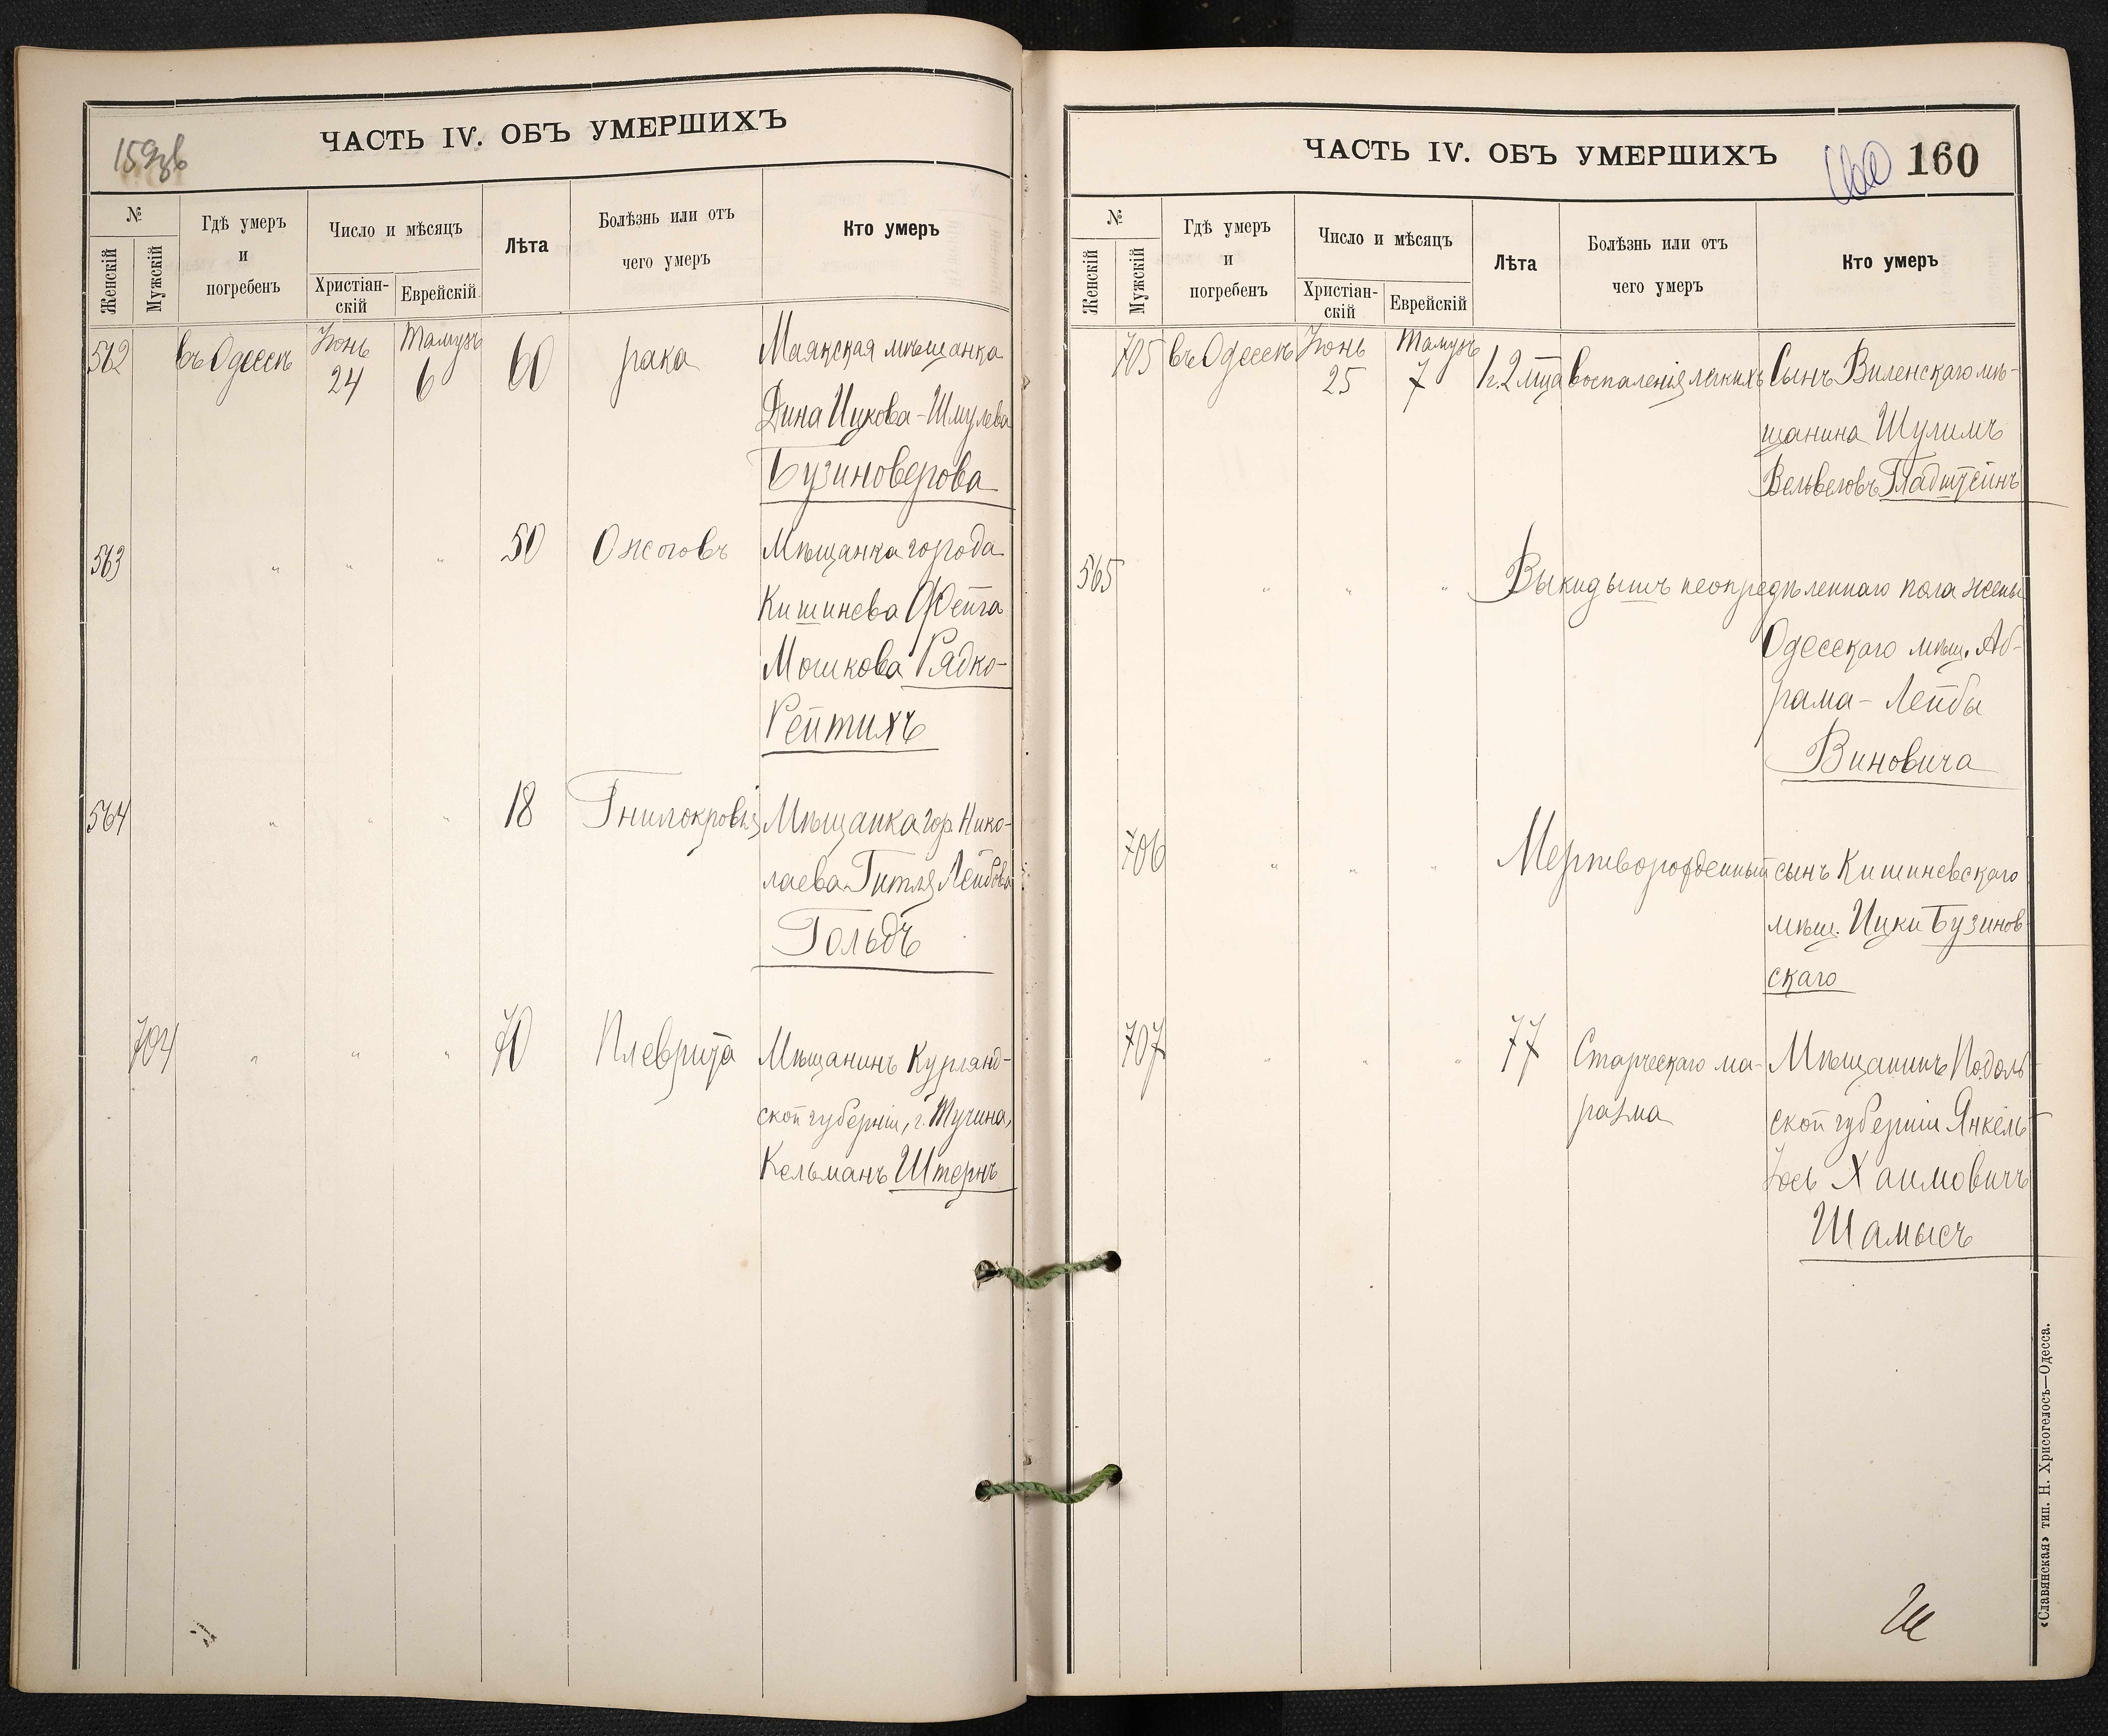 159об
ЧАСТЬ IV. ОБЪ УМЕРШИХЪ
№
Женскій
Мужскій
Гдѣ умеръ
и
погребенъ
Число и мѣсяцъ
Христіан-
скій
Еврейскій
Лѣта
Болѣзнь или отъ
чего умеръ
Кто умеръ
562 въ Одессѣ Іюнь 24 Тамузъ 6 60 рака Маякская мѣщанка
Дина Ицкова-Шмулева
Бузиноверова
563 " " " 50 Ожоговъ Мѣщанка города
Кишинева Фейга
Мошкова Рядко-
Рейтихъ
564 " " " 18 Гнилокровія Мѣщанка гор. Нико-
лаева Гитля Лейбова
Гольдъ
704 " " " 70 Плеврита Мѣщанинъ Курлянд-
ской губерніи, г. Тучина,
Кельманъ Штернъ
ЧАСТЬ IV. ОБЪ УМЕРШИХЪ
160 160
№
Женскій
Мужскій
Гдѣ умеръ
и
погребенъ
Число и мѣсяцъ
Христіан-
скій
Еврейскій
Лѣта
Болѣзнь или отъ
чего умеръ
Кто умеръ
705 въ Одессѣ Іюнь 25 Тамузъ 7 1г. 2 мца воспаленія легкихъ Сынъ Виленскаго мѣ-
щанина Шулимъ
Вельвеловъ Гладштейнъ
565 " " " Выкидышъ неопредѣленнаго пола жены
Одесскаго мѣщ. Аб-
рама-Лейбы
Виновича
706 " " " Мертворожденный сынъ Кишиневскаго
мѣщ. Ицки Бузинов-
скаго
707 " " " 77 Старческаго ма- Мѣщанинъ Подоль-
разма ской губерніи Янкель-
Іось Хаимовичъ
Шамысъ
«Славянская» тип. Н. Хрисогелосъ—Одесса.